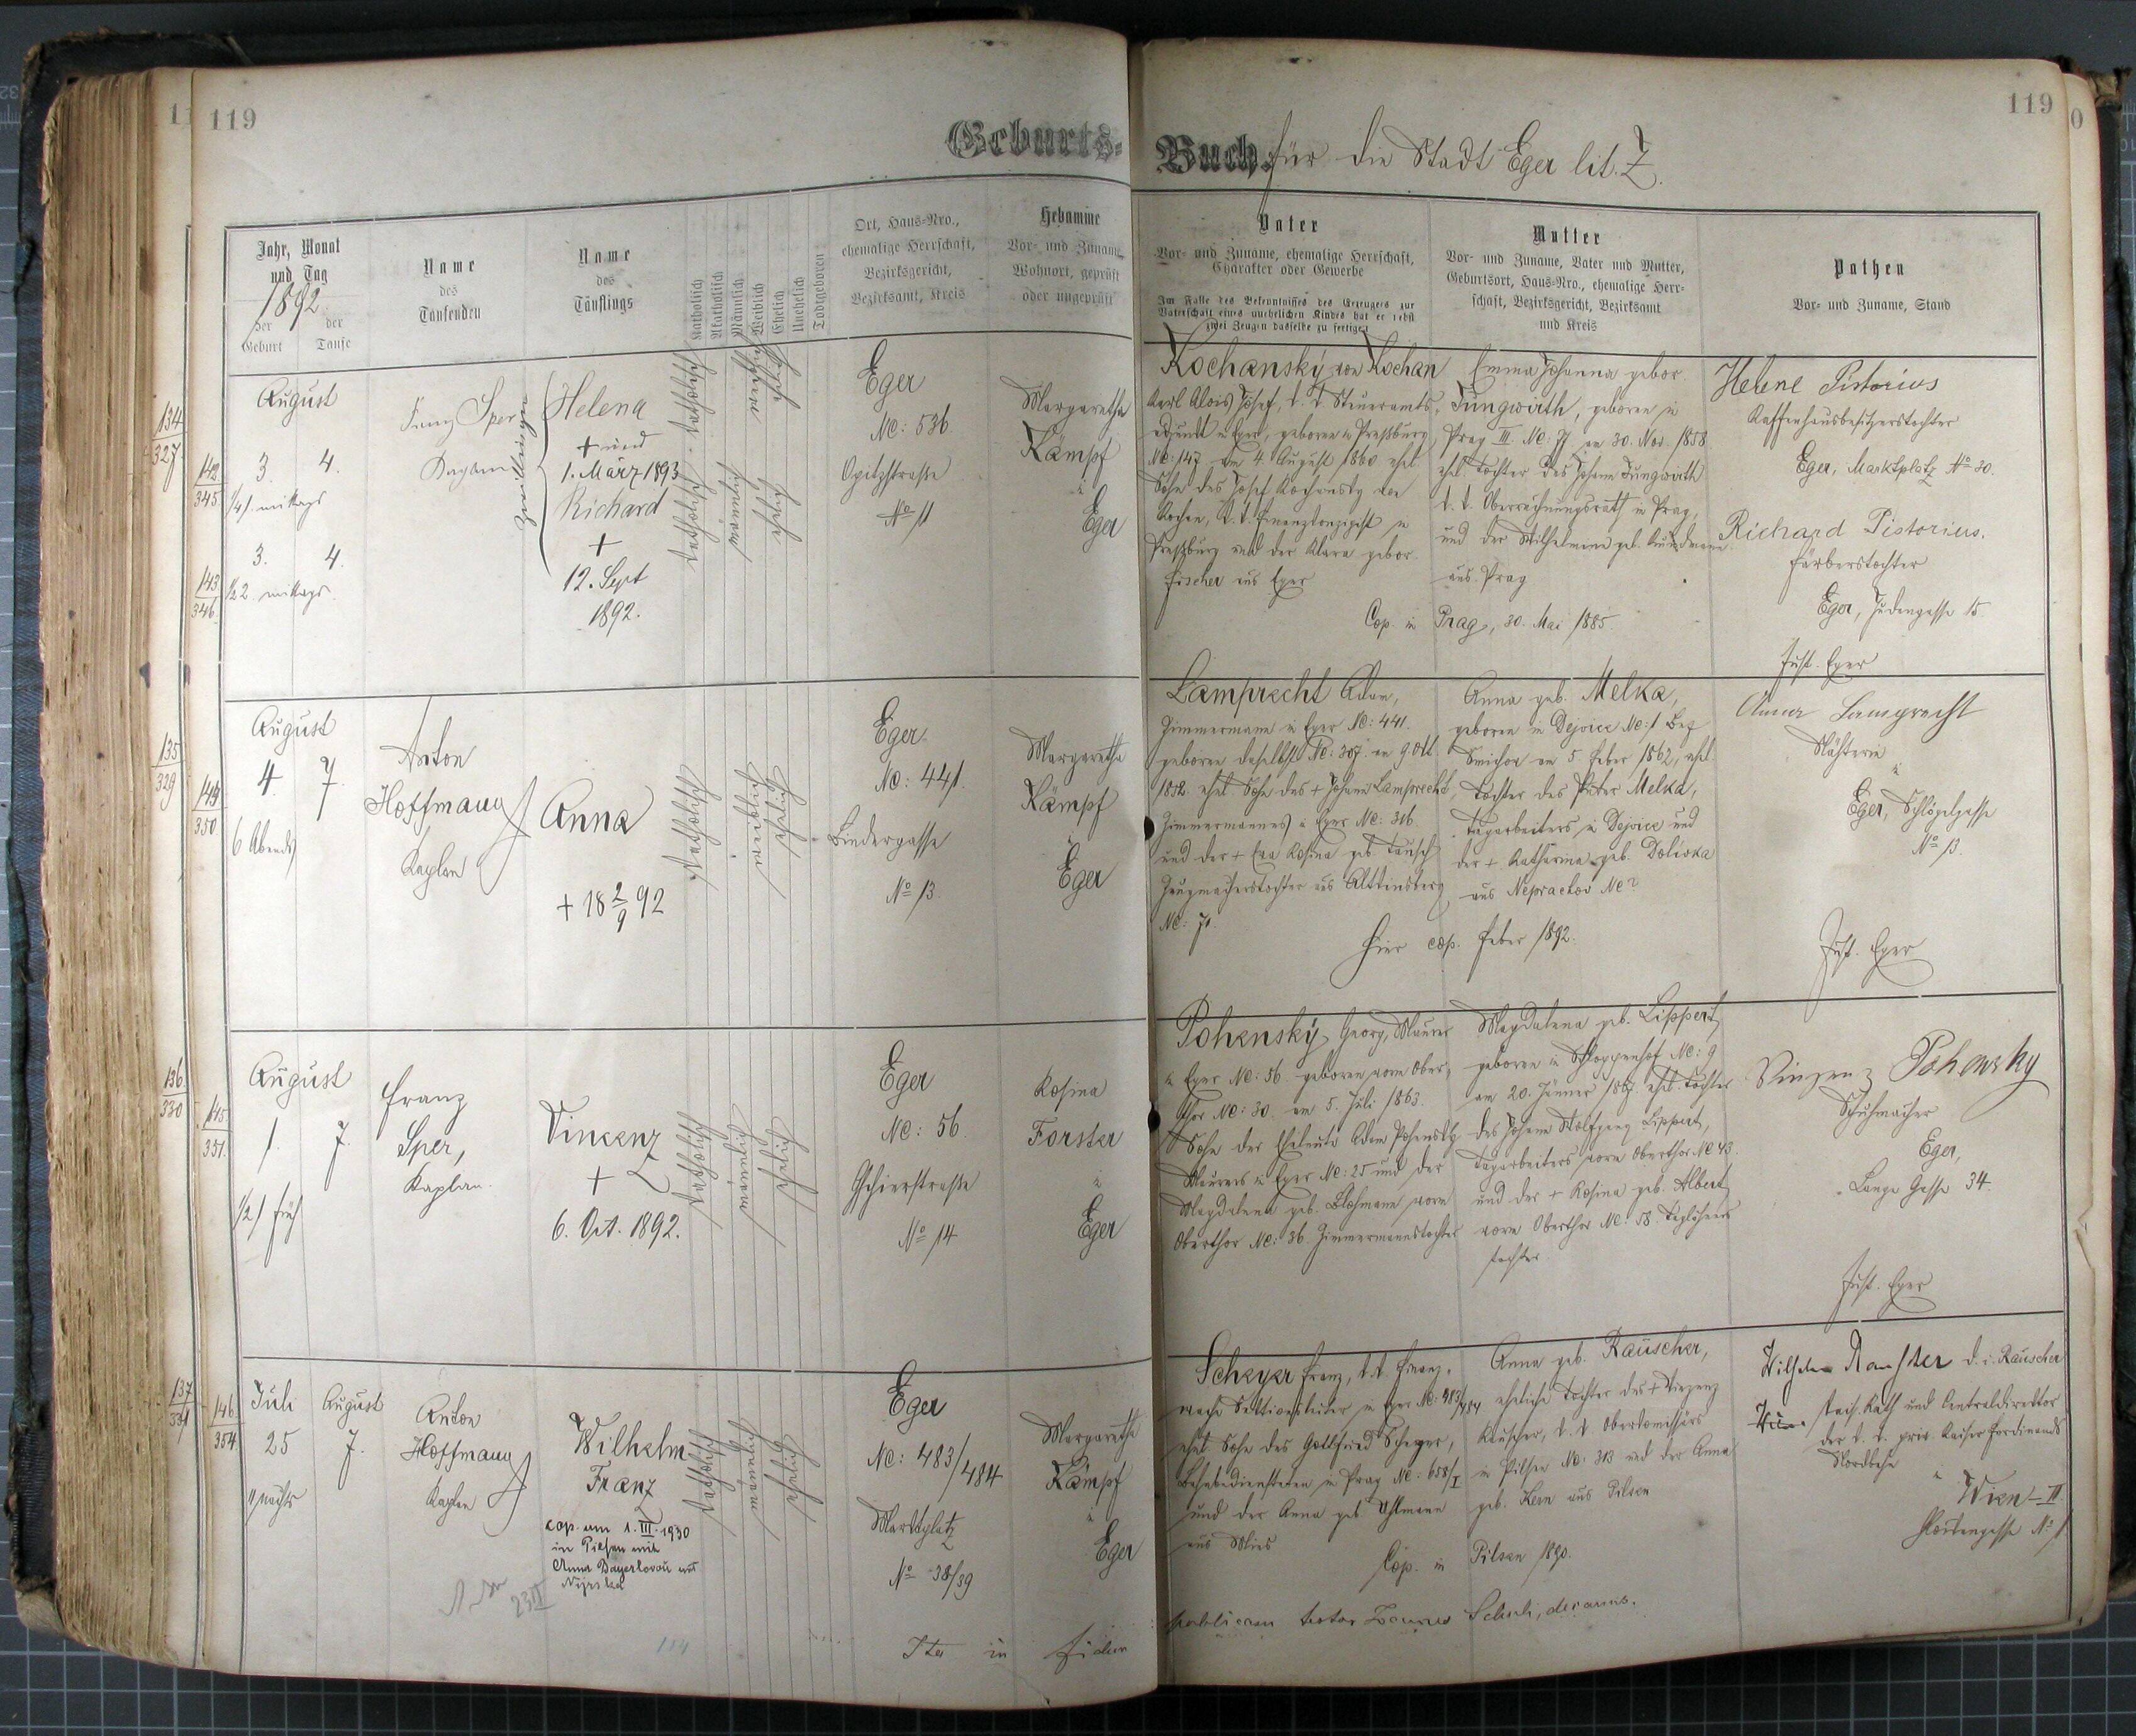 119
119
Geburts-
Buch. für die Stadt Eger lit. Z.
Jahr, Monat
und Tag
1892
der
Geburt
der
Taufe
Name
des
Taufenden
Name
des
Täuflings
Katholisch
Akatholisch
Männlich
Weiblich
Ehelich
Unehelich
Todtgeboren
Ort, Haus-Nro.,
ehemalige Herrschaft,
Bezirksgericht,
Bezirksamt, Kreis
Hebamme
Vor- und Zuname,
Wohnort, geprüft
oder ungeprüft
Vater
Vor- und Zuname, ehemalige Herrschaft,
Charakter oder Gewerbe
Im Falle des Bekenntnisses des Erzeugers zur
Vaterschaft eines unehelichen Kindes hat er nebst
zwei Zeugen dasselbe zu fertigen
Mutter
Vor- und Zuname, Vater und Mutter,
Geburtsort, Haus-Nro., ehemalige Herr-
schaft, Bezirksgericht, Bezirksamt
und Kreis
Pathen
Vor- und Zuname, Stand
134
327
142
345
143
346
August
3. 4.
1/4 1 mittags
3. 4.
1/2 2 mittags
Franz Sper
Kaplan
Zwillinge
Helena
+ und
1. März 1893
Richard
+
12. Sept
1892.
katholisch
katholisch
weiblich
männlich
ehelich
ehelich
Eger
NC: 536
Opitzstraße
No 11
Margaretha
Kämpf
in
Eger
Kochanský von Kochan
Karl Alois Josef, k. k. Steueramts-
adjunkt in Eger, geboren in Preßburg
NC: 147 am 4. August 1860 ehel.
Sohn des Josef Kochansky von
Kochan, k. k. Finanzkonzipist in
Preßburg und der Klara gebor.
Fischer aus Eger
Emma Johanna gebor.
Jungwirth, geboren in
Prag III. NC: 77 am 30. Nov. 1858
ehel. Tochter des Johann Jungwirth
k. k. Oberrechnungsrath in Prag,
und der Wilhelmine geb.
aus Prag
Cop. in Prag, 30. Mai 1885.
Helene Pistorius
Kaffeehausbesitzerstochter
Eger, Marktplatz No 30.
Richard Pistorius.
Färberstochter
Eger, Judengasse 15
Just. Eger
135
329
144
350
August
4. 7.
6 Abends
Anton
Hoffmann
Kaplan
Anna
+ 18 2/9 92
katholisch
weiblich
ehelich
Eger
NC: 441.
Bindergasse
No 13.
Margaretha
Kämpf
in
Eger
Lamprecht Adam,
Zimmermann in Eger NC: 441.
geboren daselbst NC: 307 am 9. Okt
1852. ehel. Sohn des + Johann Lamprecht,
Zimmermannes in Eger NC: 316
und der + Eva Rosina geb. Tausch
Zeugmacherstochter aus Altkinsberg
NC: 71.
Anna geb. Melka,
geboren in Dejvice NC: 1 Bez
Smichov am 5. Feber 1862, ehel.
Tochter des Peter Melka,
Tagarbeiters in Dejvice und
der + Katharina geb. Dolivka
aus NC?
Hier cop. Feber 1892.
Anna Lamprecht
Nähterin
in
Eger, Schlögelgasse
No 13.
Just. Eger
136.
330
145.
351.
August
1. 7.
1/2 1 früh
Franz
Sper,
Kaplan.
Vincenz
+
6. Oct. 1892.
katholisch
männlich
ehelich
Eger
NC: 56.
Gschierstraße
No 14
Rosina
Forster
in
Eger
Pohenský Georg, Maurer
in Eger NC: 56 geboren vorm Ober-
thor NC: 30. am 5. Juli 1863.
Sohn der Eheleute Adam Pohensky
Maurers in Eger NC: 25 und der
Magdalena geb. Loßmann vorm
Oberthor NC: 36 Zimmermannstochter
Magdalena geb. Lippert,
geboren in Schloppenhof NC: 9
am 20. Jänner 1867 ehel. Tochter
des Johann Wolfgang Lippert,
Tagarbeiters vorm Oberthor NC 43.
und der + Rosina geb. Albert
vorm Oberthor NC: 58. Taglöhners
tochter.
Vinzenz Pohensky
Schuhmacher
Eger,
Lange Gasse 34.
Just. Eger
137
331
146.
354
Juli August
25 7.
11 nachts
Anton
Hoffmann
Kaplan
Wilhelm
Franz
cop. am 1. III. 1930
in Pilsen mit
Anna Bayerlovou aus
Nýrska
23 II
katholisch
männlich
ehelich
Eger
NC: 483/484
Marktplatz
No 38/39
Margaretha
Kämpf
in
Eger
Scheyer Franz, k. k. Finanz-
wach Sektionsleiter in Eger NC: 483/484
ehel. Sohn des Gottfried Scheyer,
Bahnbediensteten in Prag NC: 658/I
und der Anna geb. Uhlmann
aus Mies
Anna geb. Rauscher,
eheliche Tochter des + Vinzenz
Rauscher, k. k. Oberkomissärs
in Pilsen NC: 313 und der Anna
geb. Kern aus Pilsen
Cop. in Pilsen 1890.
Wilhelm Rauscher d. i. Rauscher
kais. Rath und Centraldirector
der k. k. priv. Kaiser Ferdinands
Nordbahn
in
Wien - III.
No 1
Ita in fidem
publicam testor Schuh, decanus.